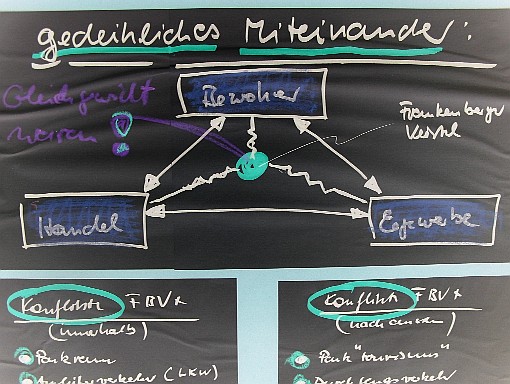 gedeihliches Miteinander:
Gleichgewicht
Bewohner
Frankenberger
Viertel
Handel
Konflikte FBV
(innerhalb)
Parkraum
(LKW)
Konflikte FBV
(nach aussen)
Park "tourismus"
Durchgangsverkehr